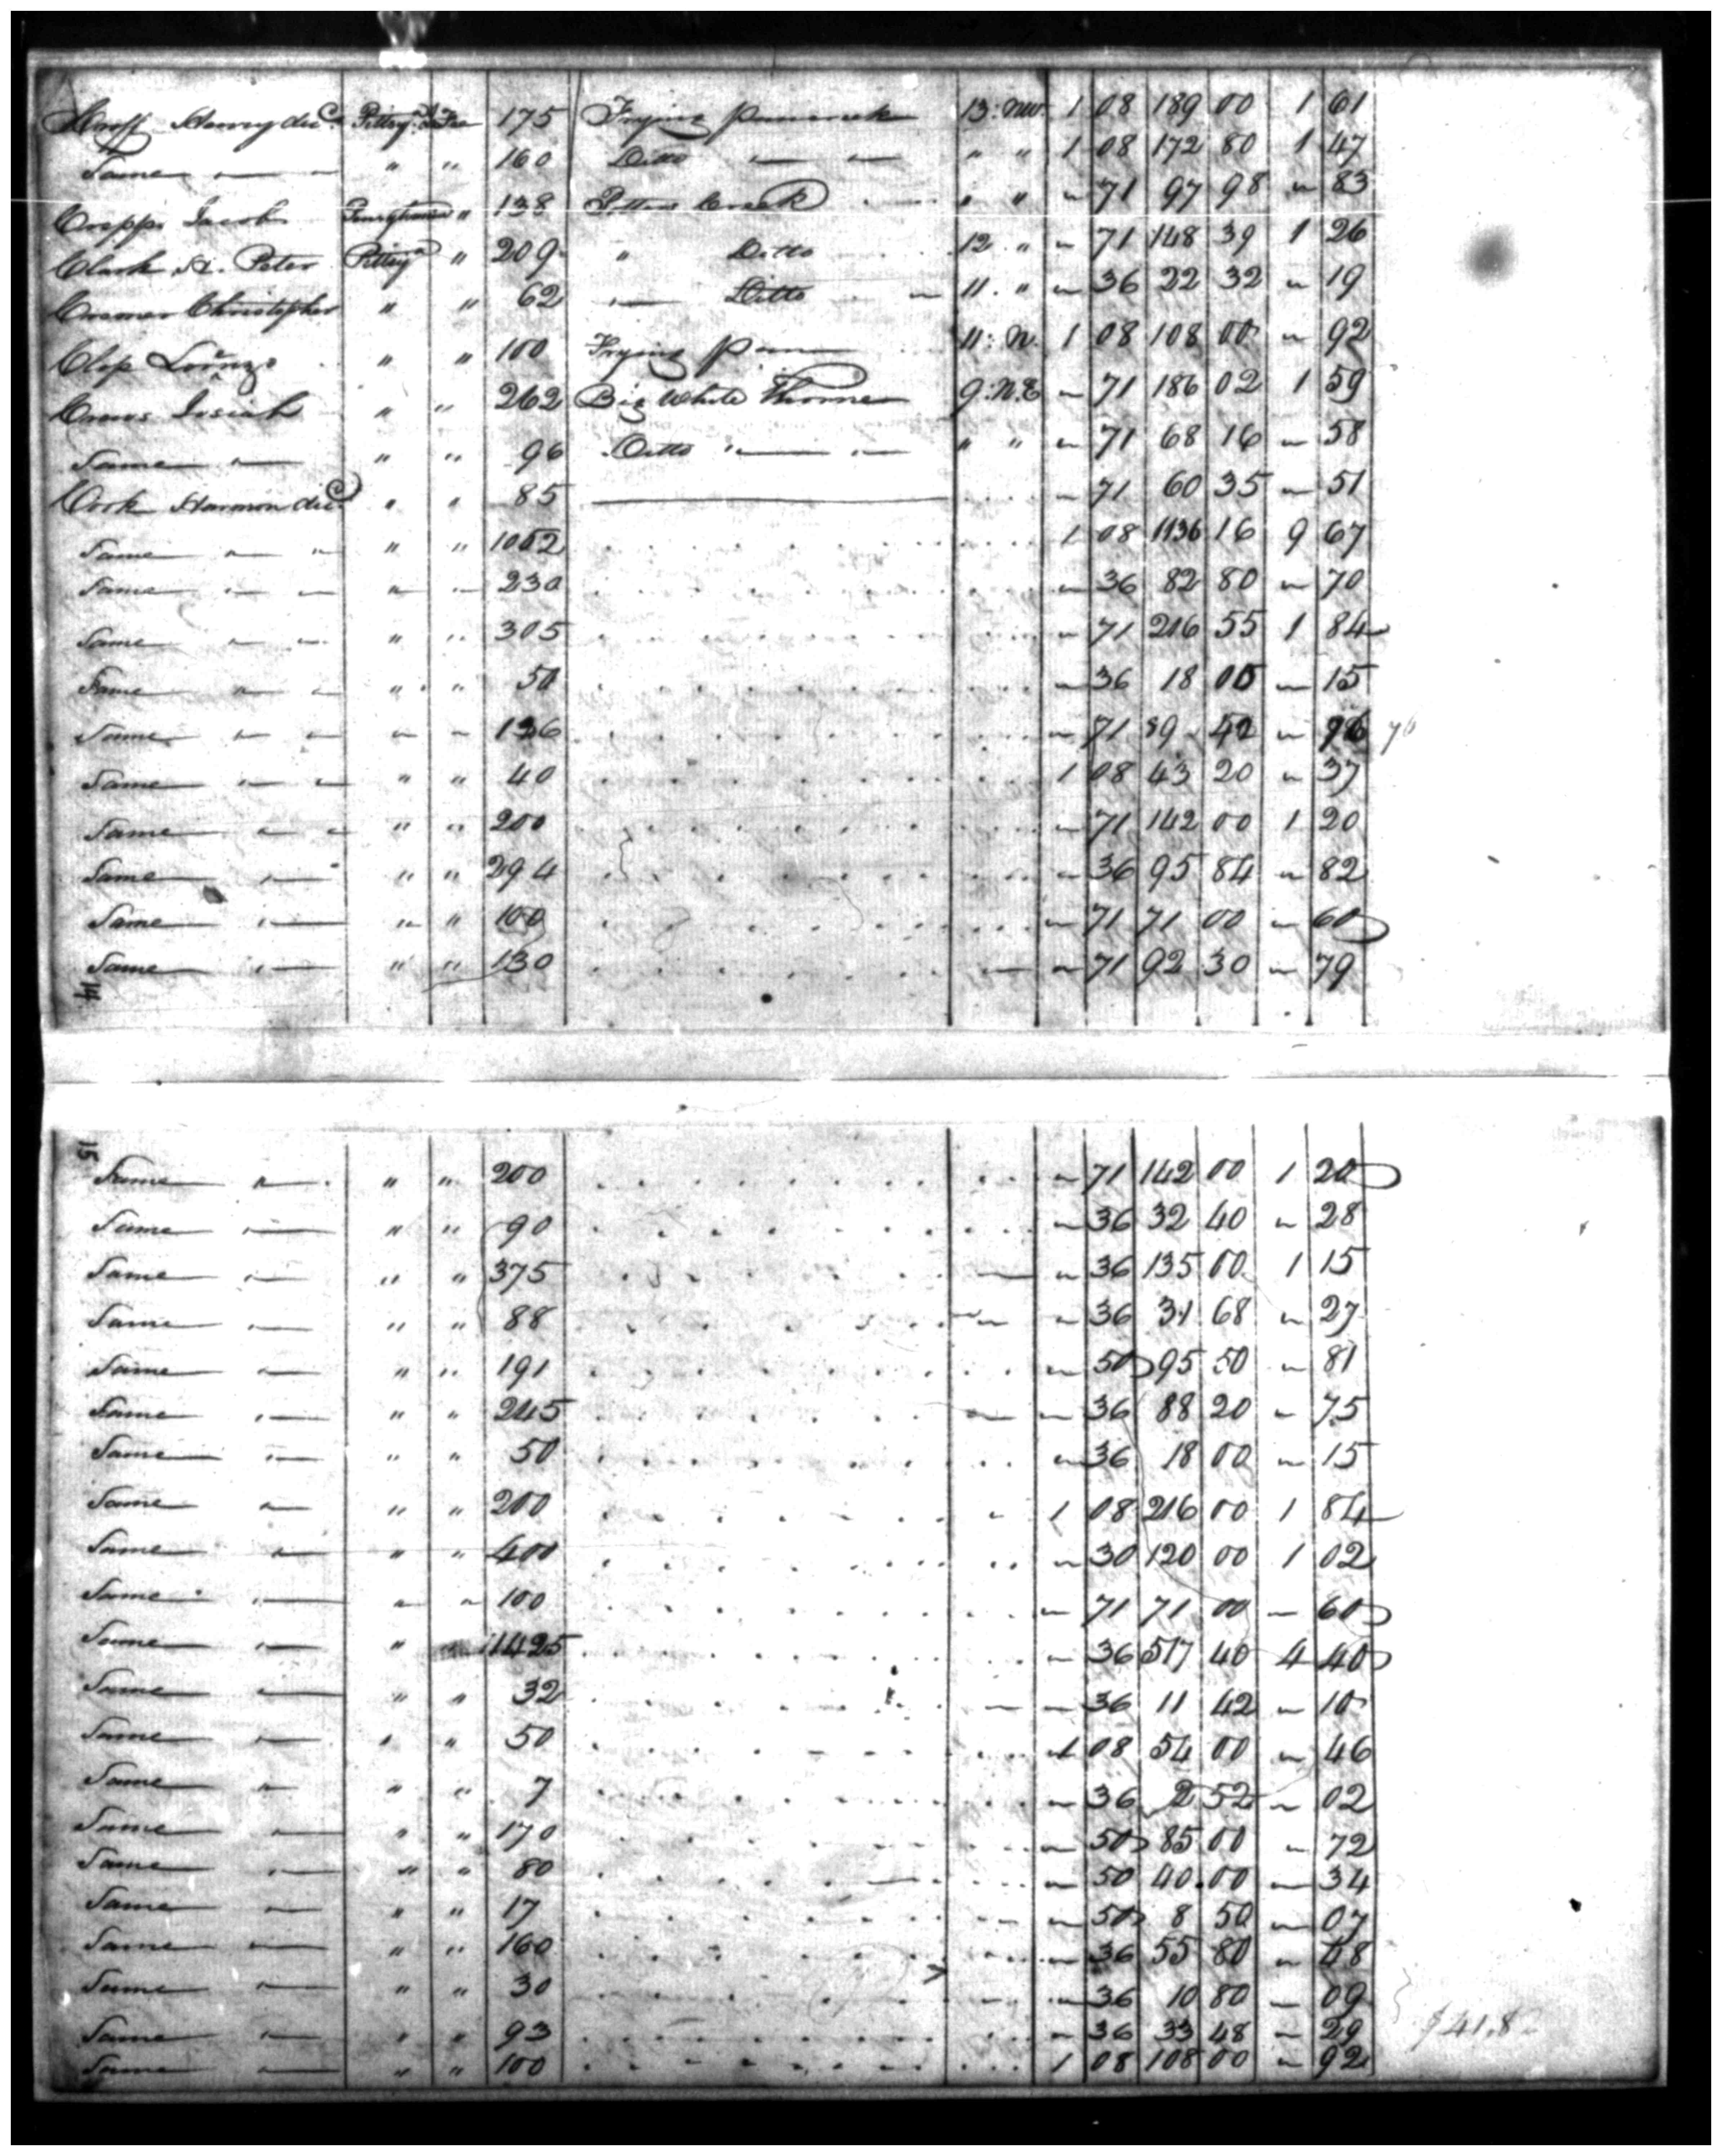 Henry dec.d Pittsy.a 175 Frying pan creek 13: NW. 1 08 189 00 1 61
Same " " 160 Ditto " " 1 08 172 80 1 47
Crapps Jacob " 138 Potters Creek " " " 71 97 98 " 83
Clark St. Peter Pittsy.a " 209 " Ditto 12 " " 71 148 39 1 26
Creamer Christopher " " 62 " Ditto 11. " " 36 22 32 " 19
Clop " " 100 Frying Pan 11: N. 1 08 108 00 " 92
Josiah " " 262 Big White Thorne 9: N.E " 71 186 02 1 59
Same " " 96 Ditto " " " 71 68 16 " 58
Cook Harmon dec.d " " 85 " 71 60 35 " 51
Same " " " " 1052 1 08 1136 16 9 67
Same " " " " 230 " 36 82 80 " 70
Same " " " " 305 " 71 216 55 1 84
Same " " " " 50 " 36 18 00 " 15
Same " " " " 126 " 71 89 42 " 76 76
Same " " " " 40 1 08 43 20 " 37
Same " " " " 200 " 71 142 00 1 20
Same " " " 294 " 36 95 84 " 82
Same " " " 100 " 71 71 00 " 60
Same " " " 130 " 71 92 30 " 79
14
15
Same " " " 200 " 71 142 00 1 20
Same " " " 90 " 36 32 40 " 28
Same " " " 375 " 36 135 00 1 15
Same " " " 88 " 36 31 68 " 27
Same " " " 191 " 50 95 50 " 81
Same " " " 245 " 36 88 20 " 75
Same " " " 50 " 36 18 00 " 15
Same " " " 200 1 08 216 00 1 84
Same " " " 400 " 30 120 00 1 02
Same " " " 100 " 71 71 00 " 60
Same " " 1425 " 36 517 40 4 40
Same " " " 32 " 36 11 42 " 10
Same " " " 50 1 08 54 00 " 46
Same " " " 7 " 36 2 52 " 02
Same " " " 170 " 50 85 00 " 72
Same " " " 80 " 50 40 00 " 34
Same " " " 17 " 50 8 50 " 07
Same " " " 160 " 36 55 80 " 48
Same " " " 30 " 36 10 80 " 09
Same " " " 93 " 36 33 48 " 29 $41.8
Same " " " 100 1 08 108 00 " 92